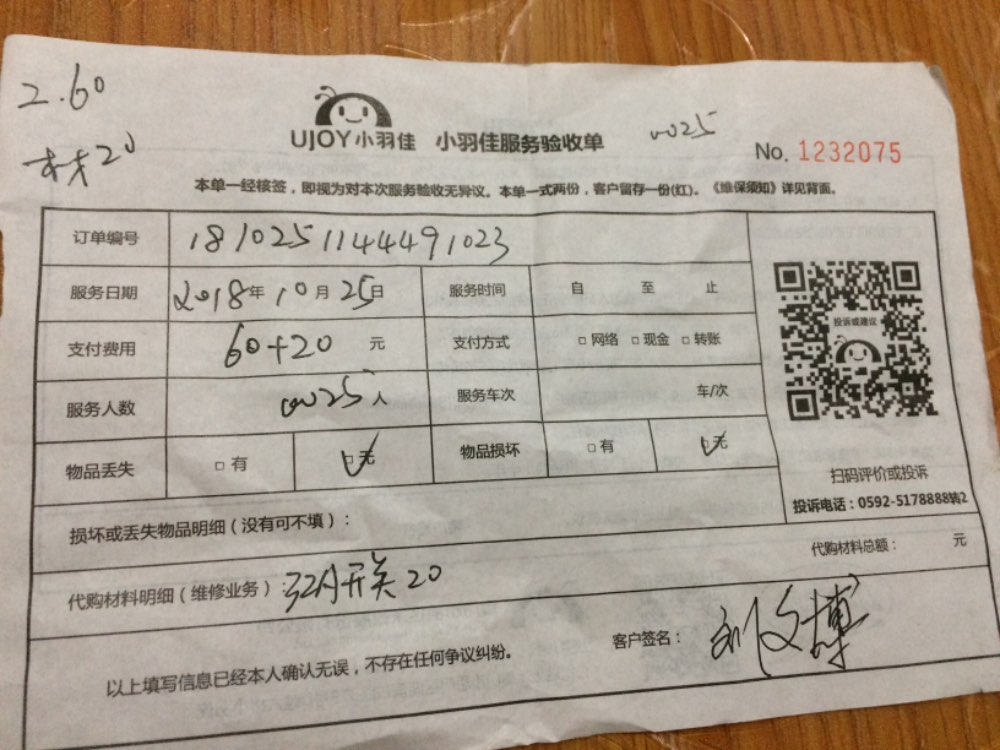 2.60
材20
UJOY小羽佳 小羽佳服务验收单
0025
No. 1232075
本单一经核签，即视为对本次服务验收无异议。本单一式两份，客户留存一份(红)。《维保须知》详见背面。
订单编号 1810251144491023
服务日期 2018年10月25日 服务时间 自 至 止
支付费用 60+20 元 支付方式 □网络 □现金 □转账
服务人数 0025人 服务车次 车/次
物品丢失 □有 □无 物品损坏 □有 □无
投诉或建议
扫码评价或投诉
投诉电话：0592-5178888转2
损坏或丢失物品明细（没有可不填）：
代购材料总额： 元
代购材料明细（维修业务）：32A开关20
客户签名：刘文博
以上填写信息已经本人确认无误，不存在任何争议纠纷。